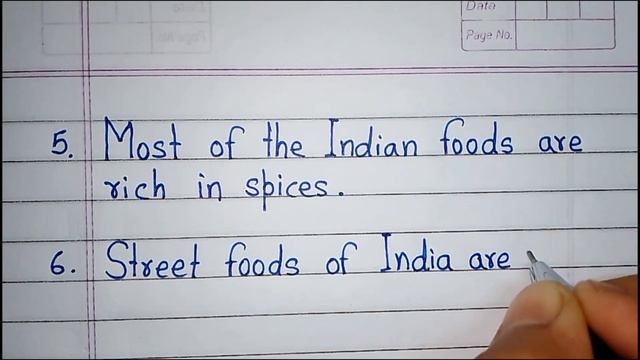 Data
Page No.
5. Most of the Indian foods are
rich in spices.
6. Street foods of India are